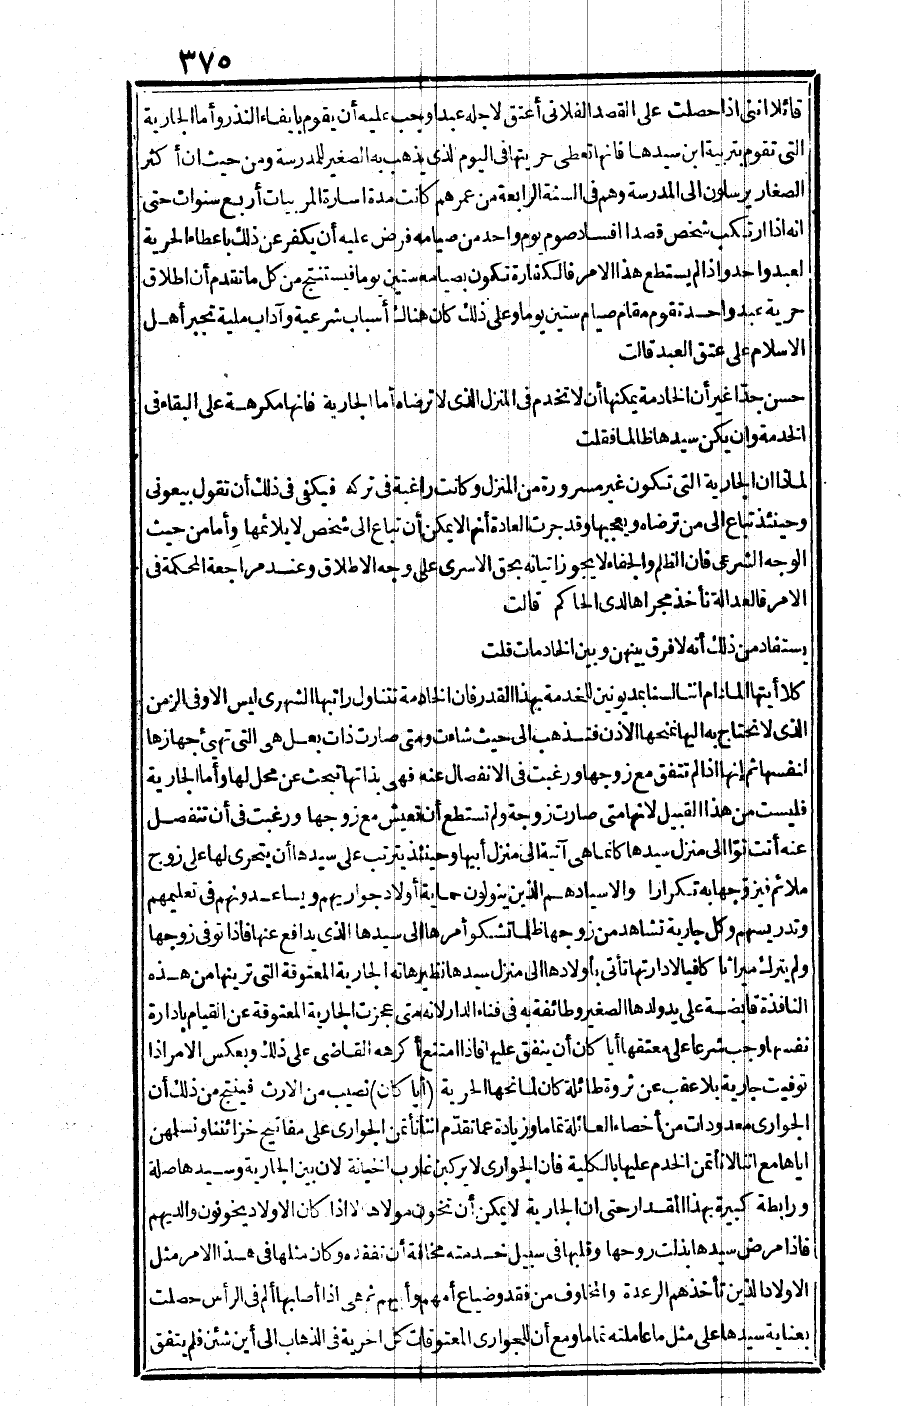 ٣٧٥
قائلا انني اذا حصلت على القصد الفلاني أعتق لاجله عبدا وجب عليه أن يقوم بايفاء النذر وأما الجارية
التي تقوم بتربية ابن سيدها فانها تعطى حريتها في اليوم الذي يذهب به الصغير للمدرسة ومن حيث ان أكثر
الصغار يرسلون الى المدرسة وهم في السنة الرابعة من عمرهم كانت مدة اسارة المربيات أربع سنوات حتى
انه اذا ارتكب شخص قصدا افساد صوم يوم واحد من صيامه فرض عليه أن يكفر عن ذلك باعطاء الحرية
لعبد واحد واذا لم يستطع هذا الامر فالكفارة تكون بصيامه ستين يوما فيستنتج من كل ما تقدم أن اطلاق
حرية عبد واحد تقوم مقام صيام ستين يوما وعلى ذلك كان هنالك أسباب شرعية وآداب ملية تجبر أهل
الاسلام على عتق العبد قالت
حسن جدّا غير أن الخادمة يمكنها أن لا تخدم في المنزل الذي لا ترضاه أما الجارية فانها مكرهة على البقاء في
الخدمة وان يكن سيدها ظالما فقلت
لماذا ان الجارية التي تكون غير مسرورة من المنزل وكانت راغبة في تركه فيكفي في ذلك أن تقول بيعوني
وحينئذ تباع الى من ترضاه ويعجبها وقد جرت العادة أنها لا يمكن أن تباع الى شخص لا يلائمها وأما من حيث
الوجه الشرعي فان الظلم والجفاء لا يجوز اتيانه بحق الاسرى على وجه الاطلاق وعند مراجعة المحكمة في
الامر فالعدالة تأخذ مجراها لدى الحاكم قالت
يستفاد من ذلك أنه لا فرق بينهن وبين الخادمات قلت
كلا أيتها المادام اننا لسنا مديونين للخدمة بهذا القدر فان الخادمة تتناول راتبها الشهري ليس الا وفي الزمن
الذي لا نحتاج به اليها نمنحها الاذن فتذهب الى حيث شاءت ومتى صارت ذات بعل هي التي تهيئ جهازها
لنفسها ثم انها اذا لم تتفق مع زوجها ورغبت في الانفصال عنه فهي بذاتها تبحث عن محل لها وأما الجارية
فليست من هذا القبيل لانها متى صارت زوجة ولم تستطع أن تعيش مع زوجها ورغبت في أن تنفصل
عنه أتت توّا الى منزل سيدها كانما هي آتية الى منزل أبيها وحينئذ يترتب على سيدها أن يتحرى لها على زوج
ملائم فيزوّجها به تكرارا والاسياد هم الذين يتولون حماية أولاد جواريهم ويساعدونهم في تعليمهم
وتدريسهم وكل جارية تشاهد من زوجها ظلما تشكو أمرها الى سيدها الذي يدافع عنها فاذا توفى زوجها
ولم يترك ميراثا كافيا لادارتها تأتي بأولادها الى منزل سيدها نظير هاته الجارية المعتوقة التي ترينها من هذه
النافذة قابضة على يد ولدها الصغير وطائفة به في فناء الدار لانه متى عجزت الجارية المعتوقة عن القيام بادارة
نفسها وجب شرعا على معتقها أيا كان أن ينفق عليها فاذا امتنع أكرهه القاضي على ذلك وبعكس الامر اذا
توفيت جارية بلا عقب عن ثروة طائلة كان لمانحها الحرية (أيا كان) نصيب من الارث فينتج من ذلك أن
الجواري معدودات من أخصاء العائلة تماما وزيادة عما تقدّم اننا نأتمن الجواري على مفاتيح خزائننا ونسلمهن
اياها مع اننا لا نأتمن الخدم عليها بالكلية فان الجواري لا يركبن غارب الخيانة لان بين الجارية وسيدها صلة
ورابطة كبيرة بهذا المقدار حتى ان الجارية لا يمكن أن تخون مولاها الا اذا كان الاولاد يخونون والديهم
فاذا مرض سيدها بذلت روحها وقلبها في سبيل خدمته مخافة أن تفقده وكان مثلها في هذا الامر مثل
الاولاد الذين تأخذهم الرعدة والمخاوف من فقد وضياع أمهم وأبيهم ثم هي اذا أصابها ألم في الرأس حصلت
بعناية سيدها على مثل ما عاملته تماما ومع أن للجواري المعتوقات كل الحرية في الذهاب الى أين شئن فلم يتفق